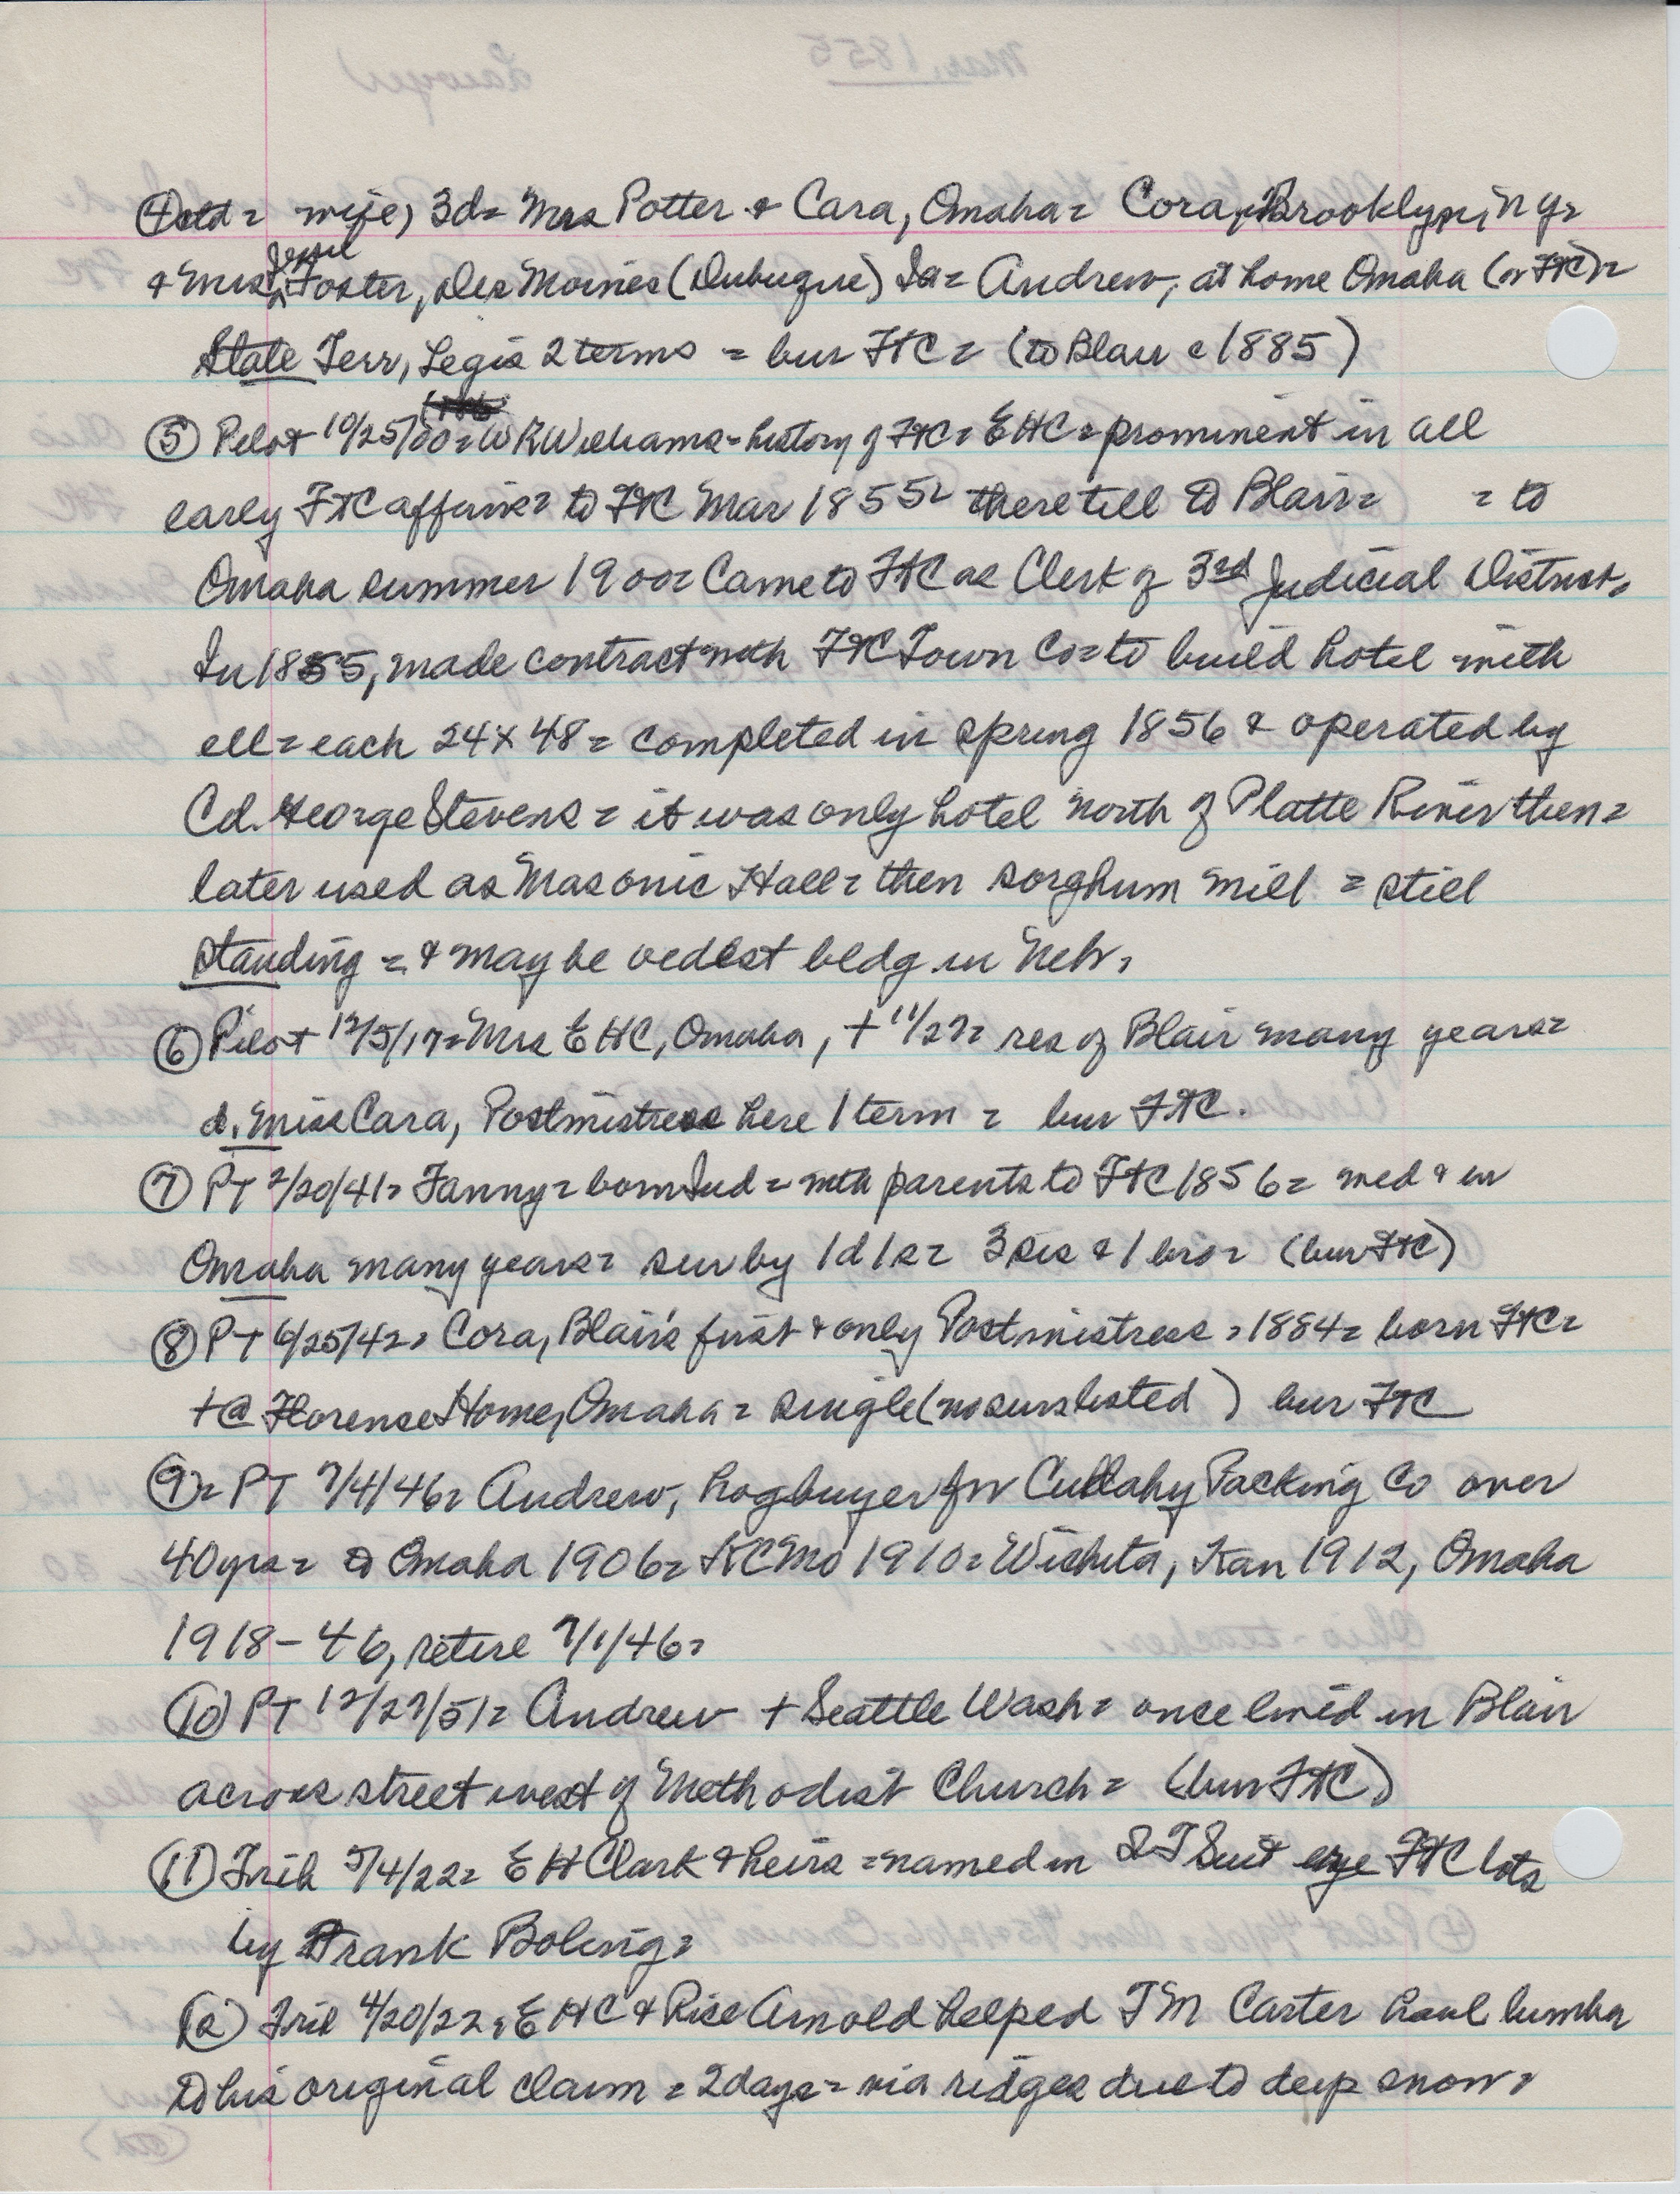 ④ctd = wife, 3d = Mrs Potter & Cara, Omaha = Cora, Brooklyn, NY =
Jessie
& Mrs Foster, Des Moines (Dubuque) Ia = Andrew, at home Omaha (or FTC) =
State Terr, Legis 2 terms = bur FTC = (to Blair c 1885)
⑤ Pilot 10/25/00 = W R Williams = history of FTC = EHC = prominent in all
early FTC affairs = to FTC Mar 1855 = there till to Blair = = to
Omaha summer 1900 = Came to FTC as Clerk of 3rd Judicial District,
In 1855, made contract with FTC Town Co = to build hotel with
ell = each 24 x 48 = completed in spring 1856 & operated by
Col. George Stevens = it was only hotel north of Platte River then =
later used as Masonic Hall = then sorghum mill = still
standing = & may be oldest bldg in Nebr,
⑥ Pilot 12/5/17 = Mrs EHC, Omaha, + 11/27 = res of Blair many years =
d. Miss Cara, Postmistress here 1 term = bur FTC.
⑦ PT 2/20/41 = Fanny = born Ind = with parents to FTC 1856 = med & in
Omaha many years = sur by 1d 1s = 3 sis & 1 bro = (bur FTC)
⑧ PT 6/25/42 = Cora, Blair's first & only Postmistress = 1884 = born FTC =
+ @ Florence Home, Omaha = single (no survs listed) bur FTC
⑨ = PT 7/4/46 = Andrew, hogbuyer for Cudahy Packing Co over
40 yrs = to Omaha 1906 = KC Mo 1910 = Wichita, Kan 1912, Omaha
1918-46, retire 7/1/46 =
⑩ PT 12/27/51 = Andrew + Seattle Wash = once lived in Blair
across street west of Methodist Church = (bur FTC)
⑪ Trib 5/4/22 = E H Clark & heirs = named in QT Suit FTC lots
by Frank Boling =
⑫ Trib 4/20/22 = EHC & Rice Arnold helped T M Carter haul lumber
to his original claim = 2 days = via ridges due to deep snow =